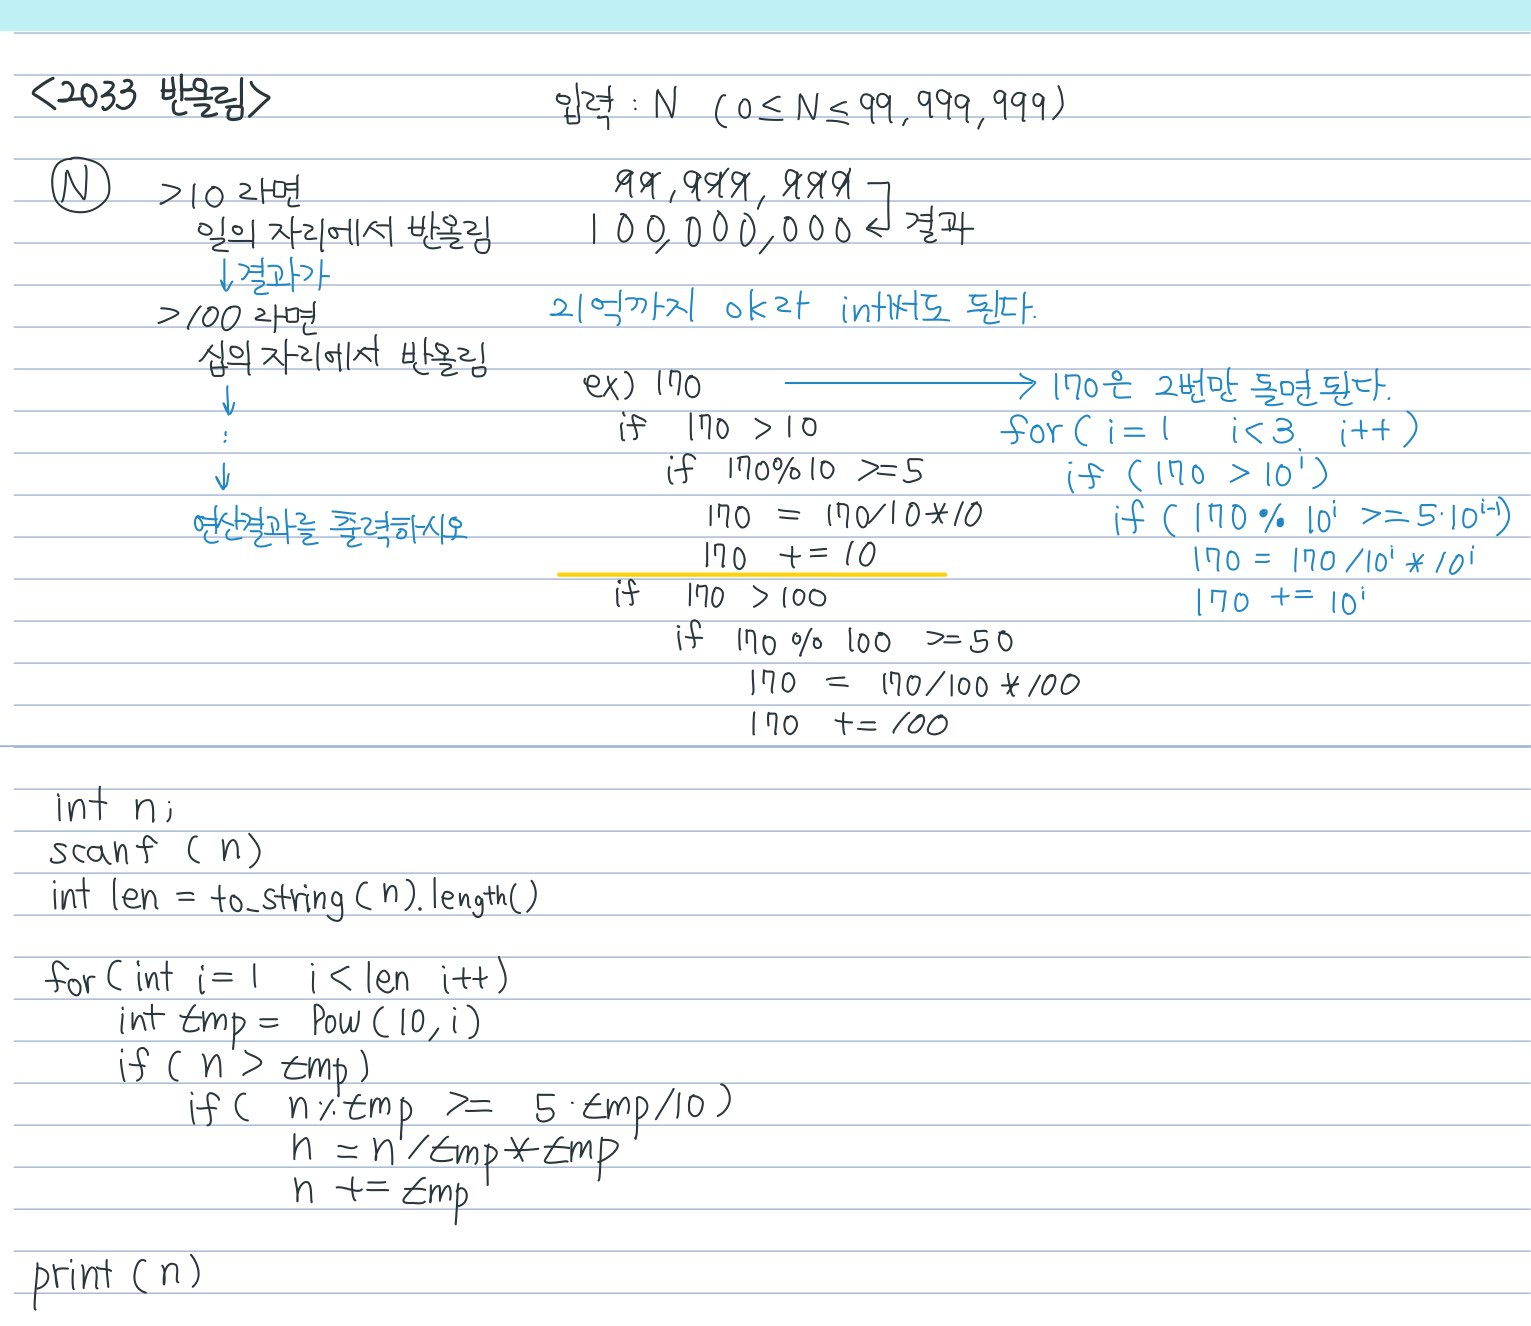 <2033 반올림>
입력 : N (0 ≤ N ≤ 99,999,999)
N
>10 라면
일의 자리에서 반올림
↓ 결과가
>100 라면
십의 자리에서 반올림
↓
:
↓
연산결과를 출력하시오
99,999,999
100,000,000 ← 결과
21억까지 ok라 int써도 된다.
ex) 170 → 170은 2번만 돌면된다.
if 170 > 10
if 170%10 >=5
170 = 170/10*10
170 += 10
if 170 > 100
if 170 % 100 >=50
170 = 170/100*100
170 += 100
for( i=1 i<3, i++ )
if (170 > 10^i)
if ( 170 % 10^i >= 5·10^i-1)
170 = 170 /10^i * 10^i
170 += 10^i
int n;
scanf (n)
int len = to_string(n).length()
for( int i=1 i<len i++)
int tmp = Pow(10,i)
if ( n > tmp)
if( n%tmp >= 5·tmp/10 )
n = n/tmp*tmp
n += tmp
print (n)